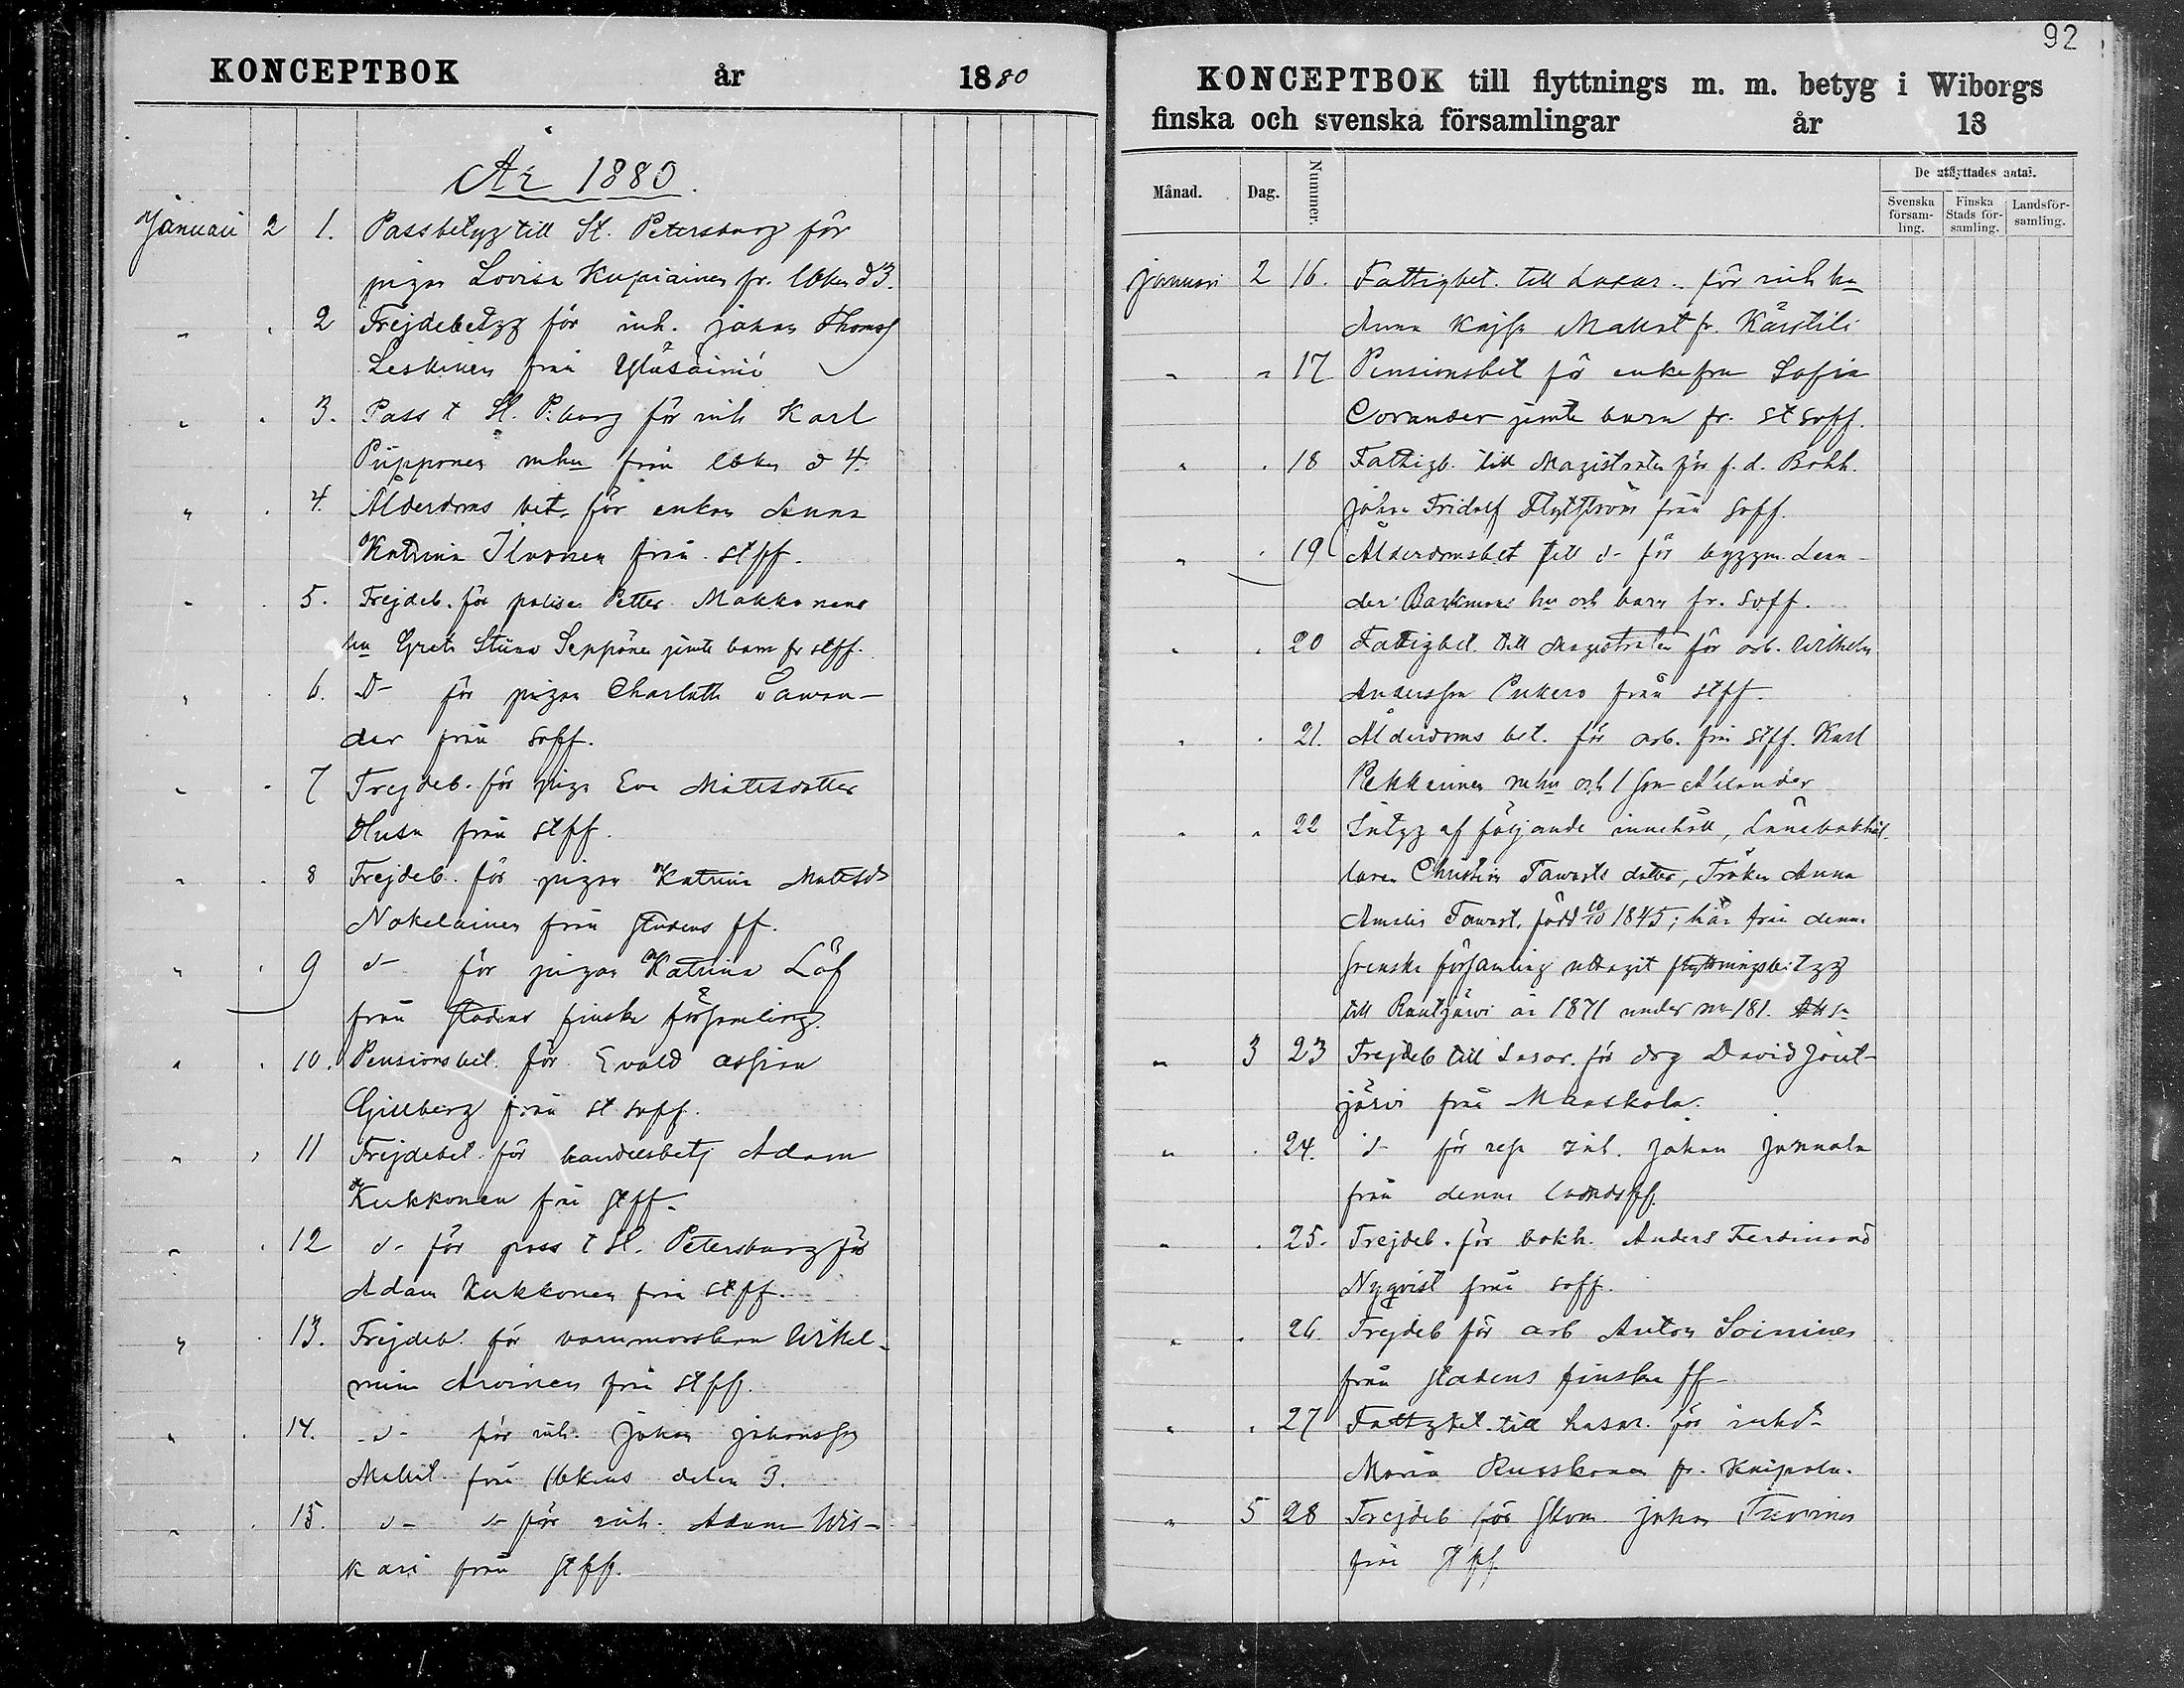 KONCEPTBOK år 1880
År 1880.
Januari 2 1. Passbetyg till St. Petersburg för
pigan Lovisa Kupiainen fr. lbken d 3.
" . 2 Frejdebetyg för inh. Johan Thomass
Leskinen från Yläsäiniö
" . 3. Pass t St. P:burg för inh Karl
Püpponen mhu från lbkn d 4.
" . 4. Ålderdoms bet. för enkan Anna
Katrina Ilvonen från stff.
" . 5. Frejdeb. för polisen Petter Makkonens
hu Greta Stiina Seppönen jemte barn fr stff.
" . 6. D- för pigan Charlotta Savan-
der från soff.
" . 7 Frejdeb. för piga Eva Mattsdotter
Husu från stff.
" . 8 Frejdeb. för pigan Katrina Mattsdr
Nokelainen från stadens ff.
" . 9 d- för pigan Katrina Löf
från stadens finska församling.
" . 10. Pensionsbet. för Evald
Gillberg från st soff.
" . 11 Frejdebet. för handelsbetj Adam
Kukkonen från stff.
" . 12 d- för pass t St. Petersburg för
Adam Kukkonen från stff.
" . 13. Frejdeb. för barnmorskan Wilhel-
mina Arvinen från stff.
" . 14. -d- för inh. Johan Johansson
från lbkens delen 3.
" . 15. d- d- för inh. Adam Wis-
kari från stff.
92
KONCEPTBOK till flyttnings m. m. betyg i Wiborgs
finska och svenska församlingar år 18
Månad. Dag. Nummer. De utflyttades antal.
Svenska församling. Finska Stads församling. Landsförsamling.
Januari 2 16. Fattigbet. till Lasar. för inh hu
Anna Kajsa fr. Kärstilä
" " 17 Pensionsbet för enkefru Sofia
Corander jemte barn fr. st soff.
" . 18 Fattigb. till Magistraten för f. d. Bokh.
Johan Fridolf Flytström från soff.
" . 19 Ålderdomsbet till d- för byggm. Lean-
der Backmans hu och barn fr. soff.
" . 20 Fattigbet. till Magistraten för arb. Wilhelm
Andersson Pukero från stff.
" . 21. Ålderdoms bet. för arb. från stff. Karl
Pekkinen mhu och 1 son Alexander
" " 22 Intyg af följande innehåll, Länebokhål-
laren Christian Tawasts dotter, Fröken Anna
Amalia Tawast, född 10/10 1845; här från denna
svenska församling uttagit flyttningsbetyg
till Rautjärvi år 1871 under no 181.
" 3 23 Frejdeb till Lasar. för drg David Jout-
järvi från Manskola.
" . 24. d- för inh. Johan Junnola
från denna landsff.
" . 25. Frejdeb. för bokh. Anders Ferdinand
Nyqvist från soff.
" . 26. Frejdeb för arb Anton Soininen
från stadens finska ff
" . 27 Fattigbet. till Lasar. för
Maria Kuoskonen fr. Kaipola.
" 5 28 Frejdeb för skom Johan Turvinen
från stff